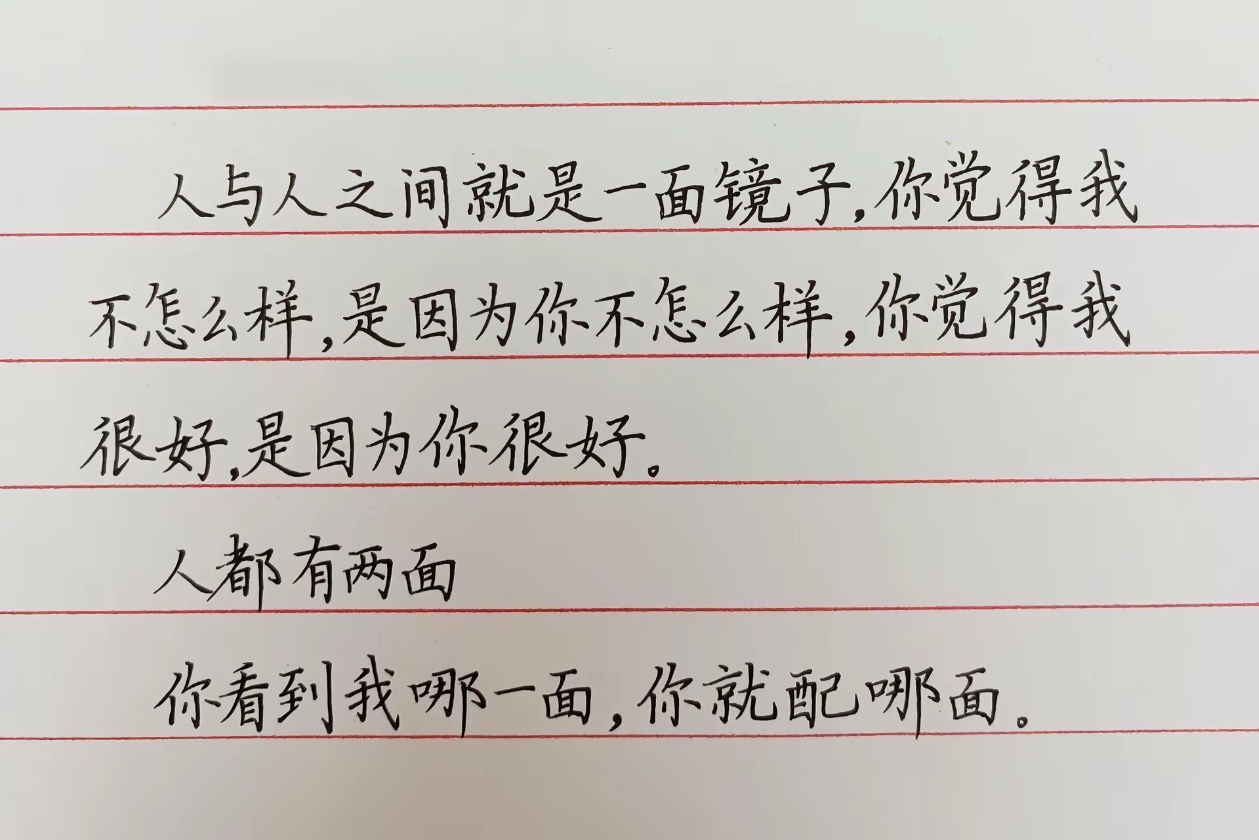 人与人之间就是一面镜子,你觉得我
不怎么样,是因为你不怎么样,你觉得我
很好,是因为你很好。
人都有两面
你看到我哪一面,你就配哪面。